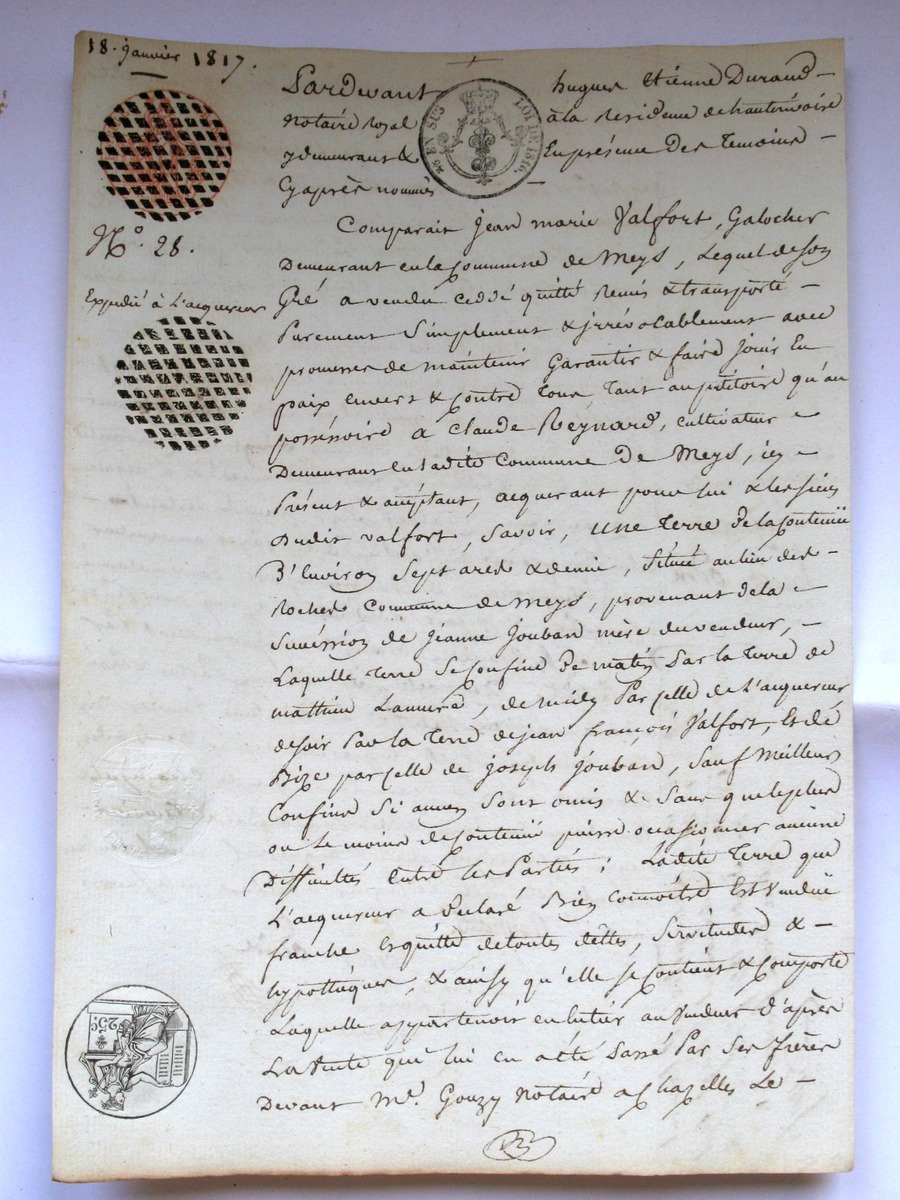 18. Janvier 1817.
Pardevant hugues Etienne Durand
Notaire Royal à la Residence de hauterivoire
y demeurant & En présence Des Temoins
Cy après nommés
EN SUS LOI DE 1816.
N.º 28.
Expedié à L'acquereur
Comparait Jean marie Valfort, Galocher
Demeurant en la Commune de Meys, Lequel de son
Gré a vendu ceddé quitté Remis & transporté
Purement Simplement & irrévocablement avec
promesses de maintenir Garantir & faire Jouir En
paix envers & Contre tous, tant au petitoire qu'au
possessoire à Claude Reynard, cultivateur
Demeurant en ladite Commune De Meys, icy
Présent & acceptant, acquerant pour lui & les siens
Dudit Valfort, Savoir, une Terre de la Contenue
D'Environ Sept ares & demi, Située au lieu des
Rochers Commune de Meys, provenant de la
Succession de Jeanne Jouban mère du vendeur,
Laquelle Terre Se Confine De matin Par la Terre de
mathieu par Celle de L'acquereur
de soir Par la Terre de jean françois Valfort, Et de
Bize par Celle de Joseph Jouban, Sauf Meilleurs
Confins Si aucuns Sont omis & Sans que le plus
ou Le moins de Contenue puisse occasionner aucune
Difficultés Entre les Parties ; Ladite Terre que
L'acquereur a Declaré Bien Connoître Est Vendue
franche & quitte de toutes dettes, Servitudes &
hypothéques, & ainsy qu'elle Se Contient & Comporte
Laquelle appartenoit en entier au Vendeur D'après
La Vente qui lui en a été Passé Par Ses frères
Devant M.e Gouzy Notaire a Chazelles Le
25c